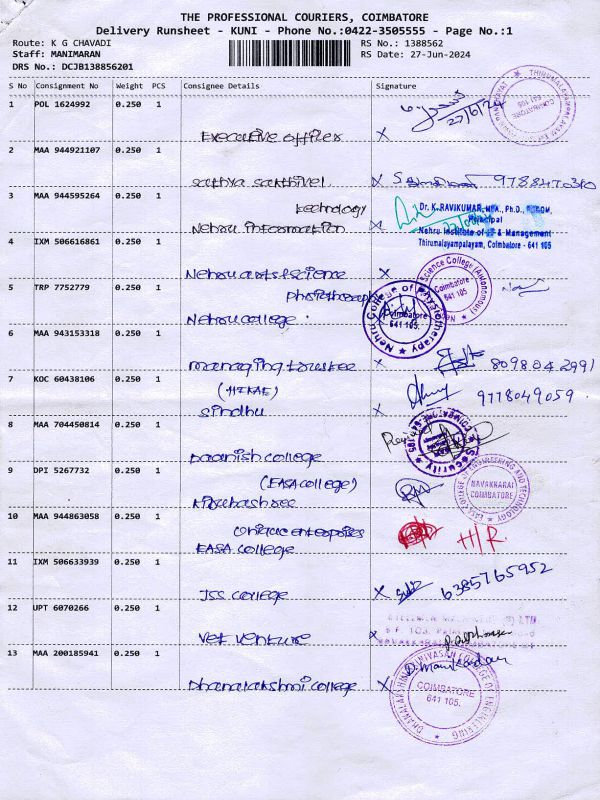 THE PROFESSIONAL COURIERS, COIMBATORE
Delivery Runsheet - KUNI - Phone No.:0422-3505555 - Page No.:1
Route: K G CHAVADI
Staff: MANIMARAN
DRS No.: DCJB138856201
RS No.: 1388562
RS Date: 27-Jun-2024
S No Consignment No Weight PCS Consignee Details Signature
1 POL 1624992 0.250 1
27/6/24
THIRUMALAYAMPALAYAM
COIMBATORE
641 105
Executive officer X
2 MAA 944921107 0.250 1
sathya sakthivel X 9788470380
3 MAA 944595264 0.250 1
technology
Nehru information X
Dr. K. RAVIKUMAR, MBA., Ph.D.,
Principal
Nehru Institute of IT & Management
Thirumalayampalayam, Coimbatore - 641 105
4 IXM 506616861 0.250 1
Nehru arts & science X
Science College (Autonomous)
Coimbatore
641 105
5 TRP 7752779 0.250 1
Nehru college
Nehru College of Physiotherapy
Coimbatore
641 105.
6 MAA 943153318 0.250 1
managing trustee X 8098042991
7 KOC 60438106 0.250 1
sindhu X 9778049059
8 MAA 704450814 0.250 1
Daanish college
Security
9 DPI 5267732 0.250 1
(EASA college)
Kirubashree
EASA COLLEGE OF ENGINEERING AND TECHNOLOGY
NAVAKKARAI
COIMBATORE
10 MAA 944863058 0.250 1
unique enterprises
EASA college
H/R
11 IXM 506633939 0.250 1
JSS college X 6385765952
12 UPT 6070266 0.250 1
Vet venture X
13 MAA 200185941 0.250 1
Dhanalakshmi college X
D. Manikandan
DHANALAKSHMI SRINIVASAN COLLEGE OF ENGINEERING
COIMBATORE
641 105.